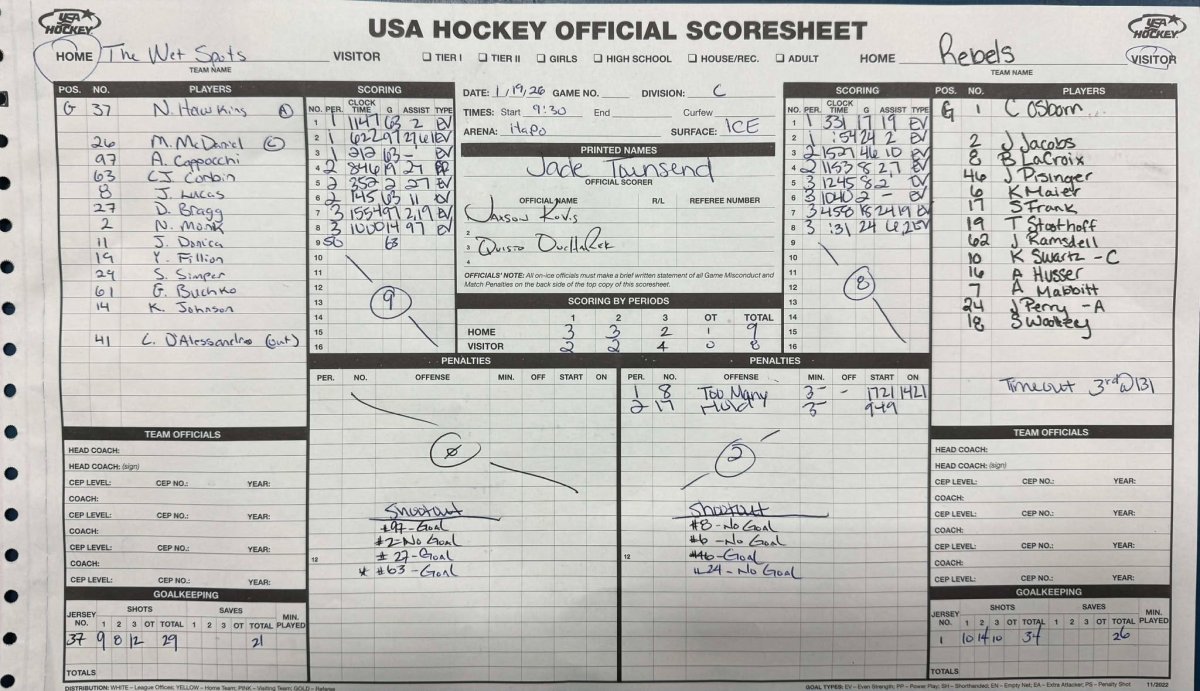 USA HOCKEY
USA HOCKEY OFFICIAL SCORESHEET
USA HOCKEY
HOME The Wet Spots VISITOR
TEAM NAME
☐ TIER I ☐ TIER II ☐ GIRLS ☐ HIGH SCHOOL ☐ HOUSE/REC. ☐ ADULT
HOME Rebels VISITOR
TEAM NAME
POS. NO. PLAYERS
G 37 N. Hawkins (A)
26 M. McDaniel (C)
97 A. Cappocchi
63 CJ. Corbin
8 J. Lucas
27 D. Bragg
2 N. Monk
11 J. Donica
19 Y. Fillion
29 S. Simper
61 G. Buchko
14 K. Johnson
41 C. D'Alessandro (out)
SCORING
NO. PER. CLOCK TIME G ASSIST TYPE
1 1 1147 63 2 EV
2 1 622 97 27 61 EV
3 1 212 63 - EV
4 2 846 19 27 PP
5 2 352 2 27 EV
6 2 145 63 11 EV
7 3 1554 97 2,19 EV
8 3 1000 14 97 EV
9 SO 63
10
11
12
13
14
15
16
9
DATE: 1,19,26 GAME NO. DIVISION: C
TIMES: Start 9:30 End Curfew
ARENA: Hapo SURFACE: ICE
PRINTED NAMES
Jade Townsend
OFFICIAL SCORER
OFFICIAL NAME R/L REFEREE NUMBER
2
3 Quisto
4
OFFICIALS' NOTE: All on-ice officials must make a brief written statement of all Game Misconduct and
Match Penalties on the back side of the top copy of this scoresheet.
SCORING BY PERIODS
1 2 3 OT TOTAL
HOME 3 3 2 1 9
VISITOR 2 2 4 0 8
SCORING
NO. PER. CLOCK TIME G ASSIST TYPE
1 1 331 17 19 EV
2 1 :54 24 2 EV
3 2 1527 46 10 EV
4 2 1153 8 2,7 EV
5 3 1245 8 2 EV
6 3 1040 2 - EV
7 3 458 18 24 19 EV
8 3 :31 24 6,2 EV
9
10
11
12
13
14
15
16
8
POS. NO. PLAYERS
G 1 C Osborn
2 J Jacobs
8 B LaCroix
46 J Pisinger
6 K Maier
17 S Frank
19 T Stosthoff
62 J Ramsdell
10 K Swartz - C
16 A Husser
7 A Mabbitt
24 J Perry - A
18 S Wookey
Timeout 3rd @ 131
PENALTIES
PER. NO. OFFENSE MIN. OFF START ON
0
Shootout
#97 - Goal
#2 - No Goal
# 27 - Goal
12
* #63 - Goal
PENALTIES
PER. NO. OFFENSE MIN. OFF START ON
1 8 Too Many 3- - 1721 1421
2 17 Hold 3- 949
2
Shootout
#8 - No Goal
#6 - No Goal
12
#46 - Goal
#24 - No Goal
TEAM OFFICIALS
HEAD COACH:
HEAD COACH: (sign)
CEP LEVEL: CEP NO.: YEAR:
COACH:
CEP LEVEL: CEP NO.: YEAR:
COACH:
CEP LEVEL: CEP NO.: YEAR:
COACH:
CEP LEVEL: CEP NO.: YEAR:
GOALKEEPING
JERSEY NO. SHOTS 1 2 3 OT TOTAL SAVES 1 2 3 OT TOTAL MIN. PLAYED
37 9 8 12 29 21
TOTALS
TEAM OFFICIALS
HEAD COACH:
HEAD COACH: (sign)
CEP LEVEL: CEP NO.: YEAR:
COACH:
CEP LEVEL: CEP NO.: YEAR:
COACH:
CEP LEVEL: CEP NO.: YEAR:
COACH:
CEP LEVEL: CEP NO.: YEAR:
GOALKEEPING
JERSEY NO. SHOTS 1 2 3 OT TOTAL SAVES 1 2 3 OT TOTAL MIN. PLAYED
1 10 14 10 34 26
TOTALS
DISTRIBUTION: WHITE – League Offices; YELLOW – Home Team; PINK – Visiting Team; GOLD – Referee
GOAL TYPES: EV – Even Strength; PP – Power Play; SH – Shorthanded; EN – Empty Net; EA – Extra Attacker; PS – Penalty Shot 11/2022